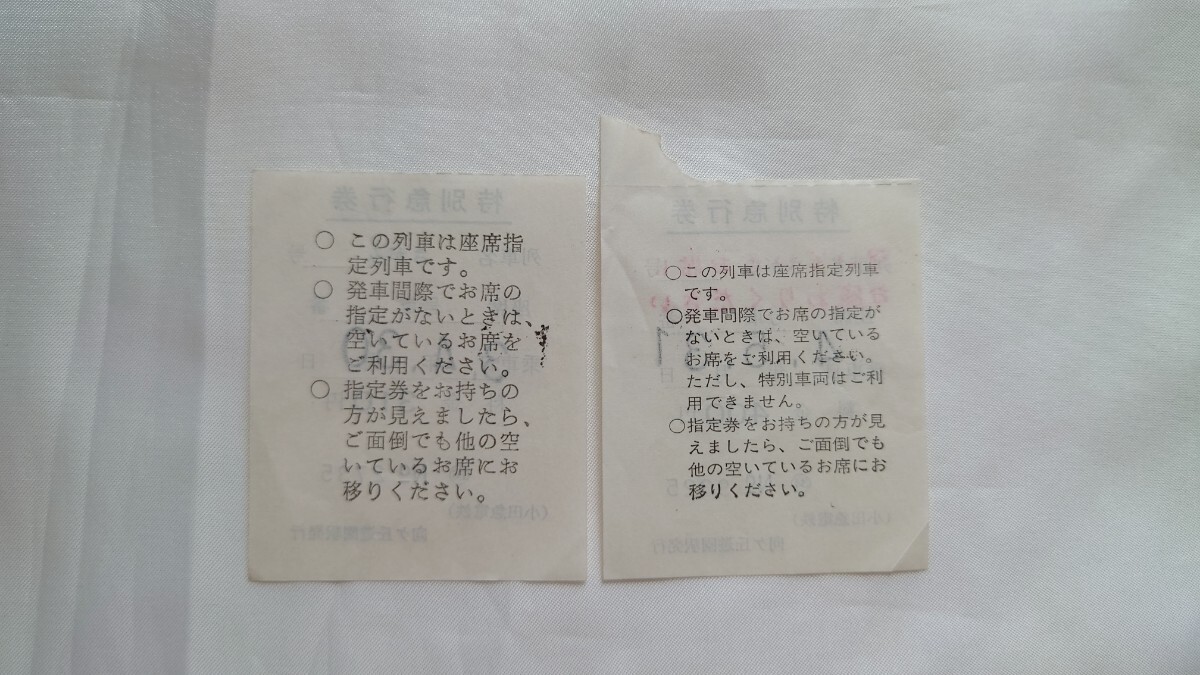 特別急行券
○ この列車は座席指
定列車です。
○ 発車間際でお席の
指定がないときは、
空いているお席を
ご利用ください。
○ 指定券をお持ちの
方が見えましたら、
ご面倒でも他の空
いているお席にお
移りください。
(小田急電鉄)
向ケ丘遊園駅発行
特別急行券
○この列車は座席指定列車
です。
○発車間際でお席の指定が
ないときは、空いている
お席をご利用ください。
ただし、特別車両はご利
用できません。
○指定券をお持ちの方が見
えましたら、ご面倒でも
他の空いているお席にお
移りください。
(小田急電鉄)
向ケ丘遊園駅発行